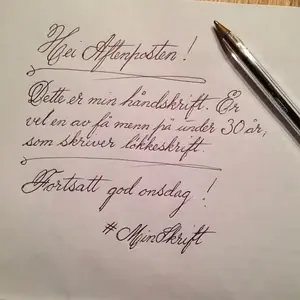 Hei Aftenposten!
Dette er min håndskrift. Er
vel en av få menn på under 30 år,
som skriver løkkeskrift.
Fortsatt god onsdag!
#MinSkrift